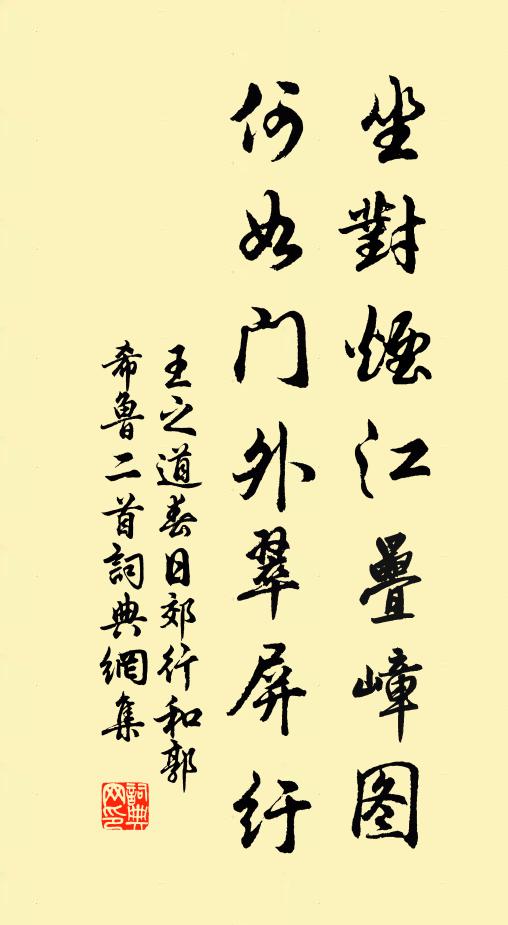 坐對煙江疊嶂图
何如门外翠屏纡
王之道春日郊行和郭
希魯二首詞典網集
詞典網印